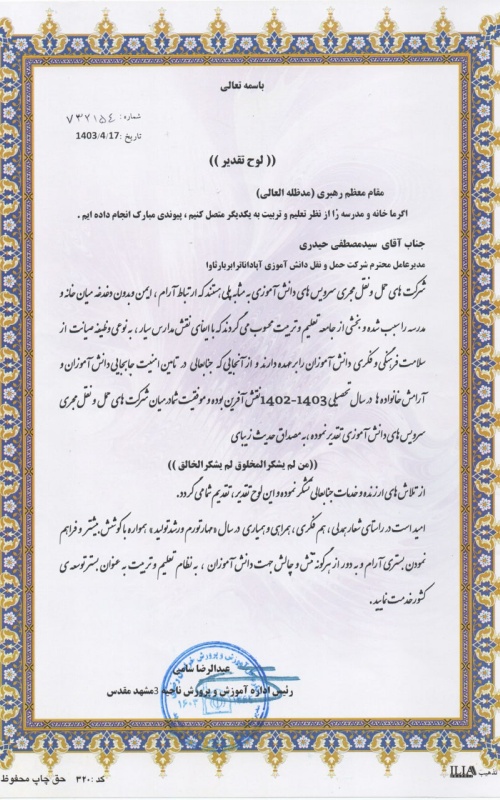 باسمه تعالی
شماره: ۷۳۲۱۵٤
تاریخ :1403/4/17
(( لوح تقدیر ))
مقام معظم رهبری (مدظله العالی)
اگرما خانه و مدرسه را از نظر تعلیم و تربیت به یکدیگر متصل کنیم ، پیوندی مبارک انجام داده ایم .
جناب آقای سیدمصطفی حیدری
مدیرعامل محترم شرکت حمل و نقل دانش آموزی آباداناترابریارتاوا
شرکت های حمل و نقل مجری سرویس های دانش آموزی به مثابه پلی هستند که ارتباط آرام ، ایمن و بدون دغدغه میان خانه و
مدرسه را سبب شده و بخشی از جامعه تعلیم و تربیت محسوب می گردند که با ایفای نقش مدارس سیار ، به نوعی وظیفه صیانت از
سلامت فرهنگی و فکری دانش آموزان را بر عهده دارند و از آنجایی که جنابعالی در تامین امنیت جابجایی دانش آموزان و
آرامش خانواده ها در سال تحصیلی 1403-1402 نقش آفرین بوده و موفقیت شما در میان شرکت های حمل و نقل مجری
سرویس های دانش آموزی تقدیر نموده ،به مصداق حدیث زیبای
((من لم یشکرالمخلوق لم یشکرالخالق ))
از تلاش های ارزنده و خدمات جنابعالی تشکر نموده و این لوح تقدیر ، تقدیم شما می گردد.
امید است در راستای شعار همدلی ، هم فکری ، همراهی و همیاری در سال «مهار تورم و رشد تولید» همواره با کوشش بیشتر و فراهم
نمودن بستری آرام و به دور از هرگونه تنش و چالش جهت دانش آموزان ، به نظام تعلیم و تربیت به عنوان بستر توسعه ی
کشور خدمت نمایید.
عبدالرضا سامی
رئیس اداره آموزش و پرورش ناحیه 3مشهد مقدس
تذهیب ILIA
کد :۳۲۰ حق چاپ محفوظ